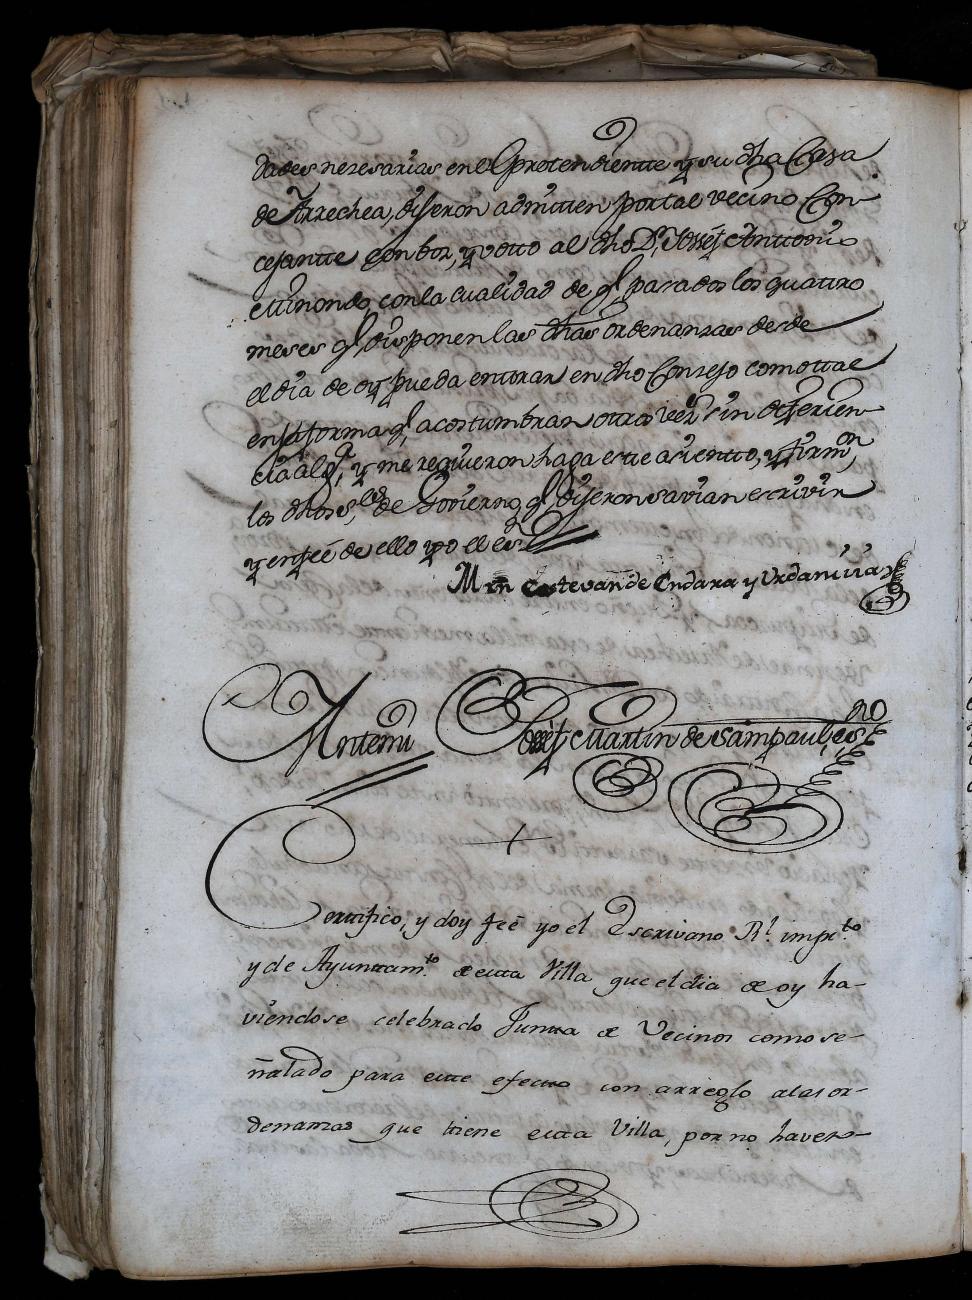 dades neresarias en el pretendientte y su dha Casa
de Arrechea, dijeron admitien por tal vecino Con-
cejantte con boz, y votto al dho Dn. Joseph Anttonio
etti nondo, con la cualidad de q pasados los quattro
meses q disponen las dhas ordenanzas desde
el dia de oy pueda enttrar en dho Consejo como ttal
en la forma q acostumbran ottros vezs sin diferien-
cia alga, y me requieron haga este asientto, y firmon
los dhos Sres de Govierno q dijeron savian escrivir
y en feé de ello yo el esno
Mrn Estevan de Endara y Urdanivia
Antemi Joseph Martin de Sampaul, esno
Certtifico, y doy feé yo el Escrivano Rl. impto
y de Ayunttamto de estta Villa que el dia de oy ha-
viendose celebrado Juntta de Vecinos como se-
ñalado para estte efectto con arreglo alas or-
denanzas que ttiene estta Villa, por no haver